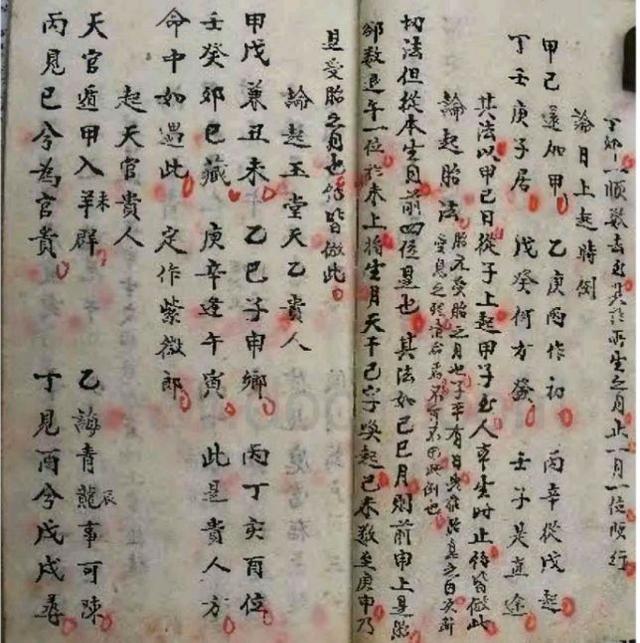 一順數去至其於所生之月止一月一位順行
論日上起時例
甲己還加甲 乙庚丙作初 丙辛從戊起
丁壬庚子居 戊癸何方發 壬子是直途
其法以甲己日從子上起甲子至人本生時止餘皆倣此
論起胎法 胎元受胎之月也子平有曰
受息之
切法但從本生月前四位是也 其法如己巳月則前申上是胎
却數退午一位於未上將生月天干己字喚起己未數至庚申乃
是受胎之月也餘皆倣此
論起玉堂天乙貴人
甲戊兼丑未 乙己子申鄉 丙丁亥酉位
壬癸卯巳藏 庚辛逢午寅 此是貴人方
命中如遇此 定作紫微郎
起天官貴人
天官遁甲入羊群 未 乙誨青龍事可陳 辰
丙見巳兮為官貴 丁見酉兮戊戌尋